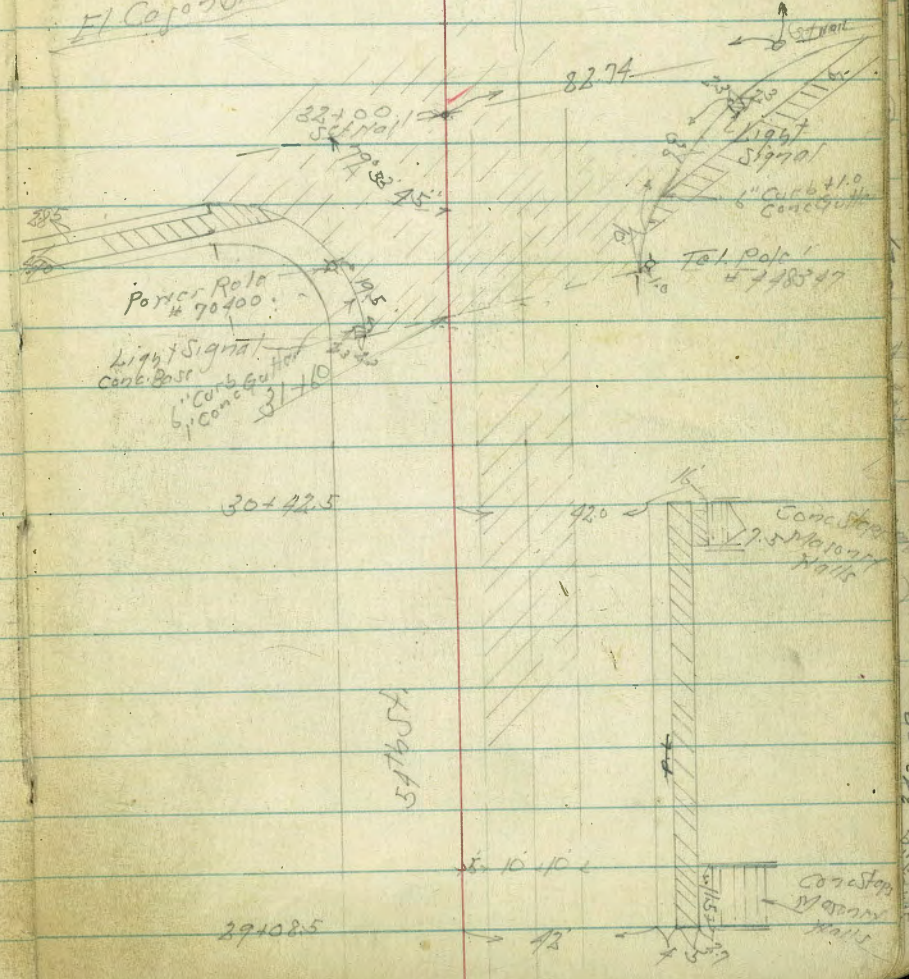 El Cajon
St Nail
82.74
32+00.1
Set Nail
79° 33' 45"
23
23
Light
Signal
36
6" Curb +1.0
Conc Gutter
285
Tel. Pole
# 448547
1.0
Power Pole
# 70400
19.5
Light Signal
Conc. Base
6" Curb
1' Conc Gutter
31+60
30+42.5
42.0
16'
Conc Steps
7.5
Masonry
Walls
54th St
10' 10'
Conc Steps
Masonry
Walls
29+08.5
42'
4
5
3.7